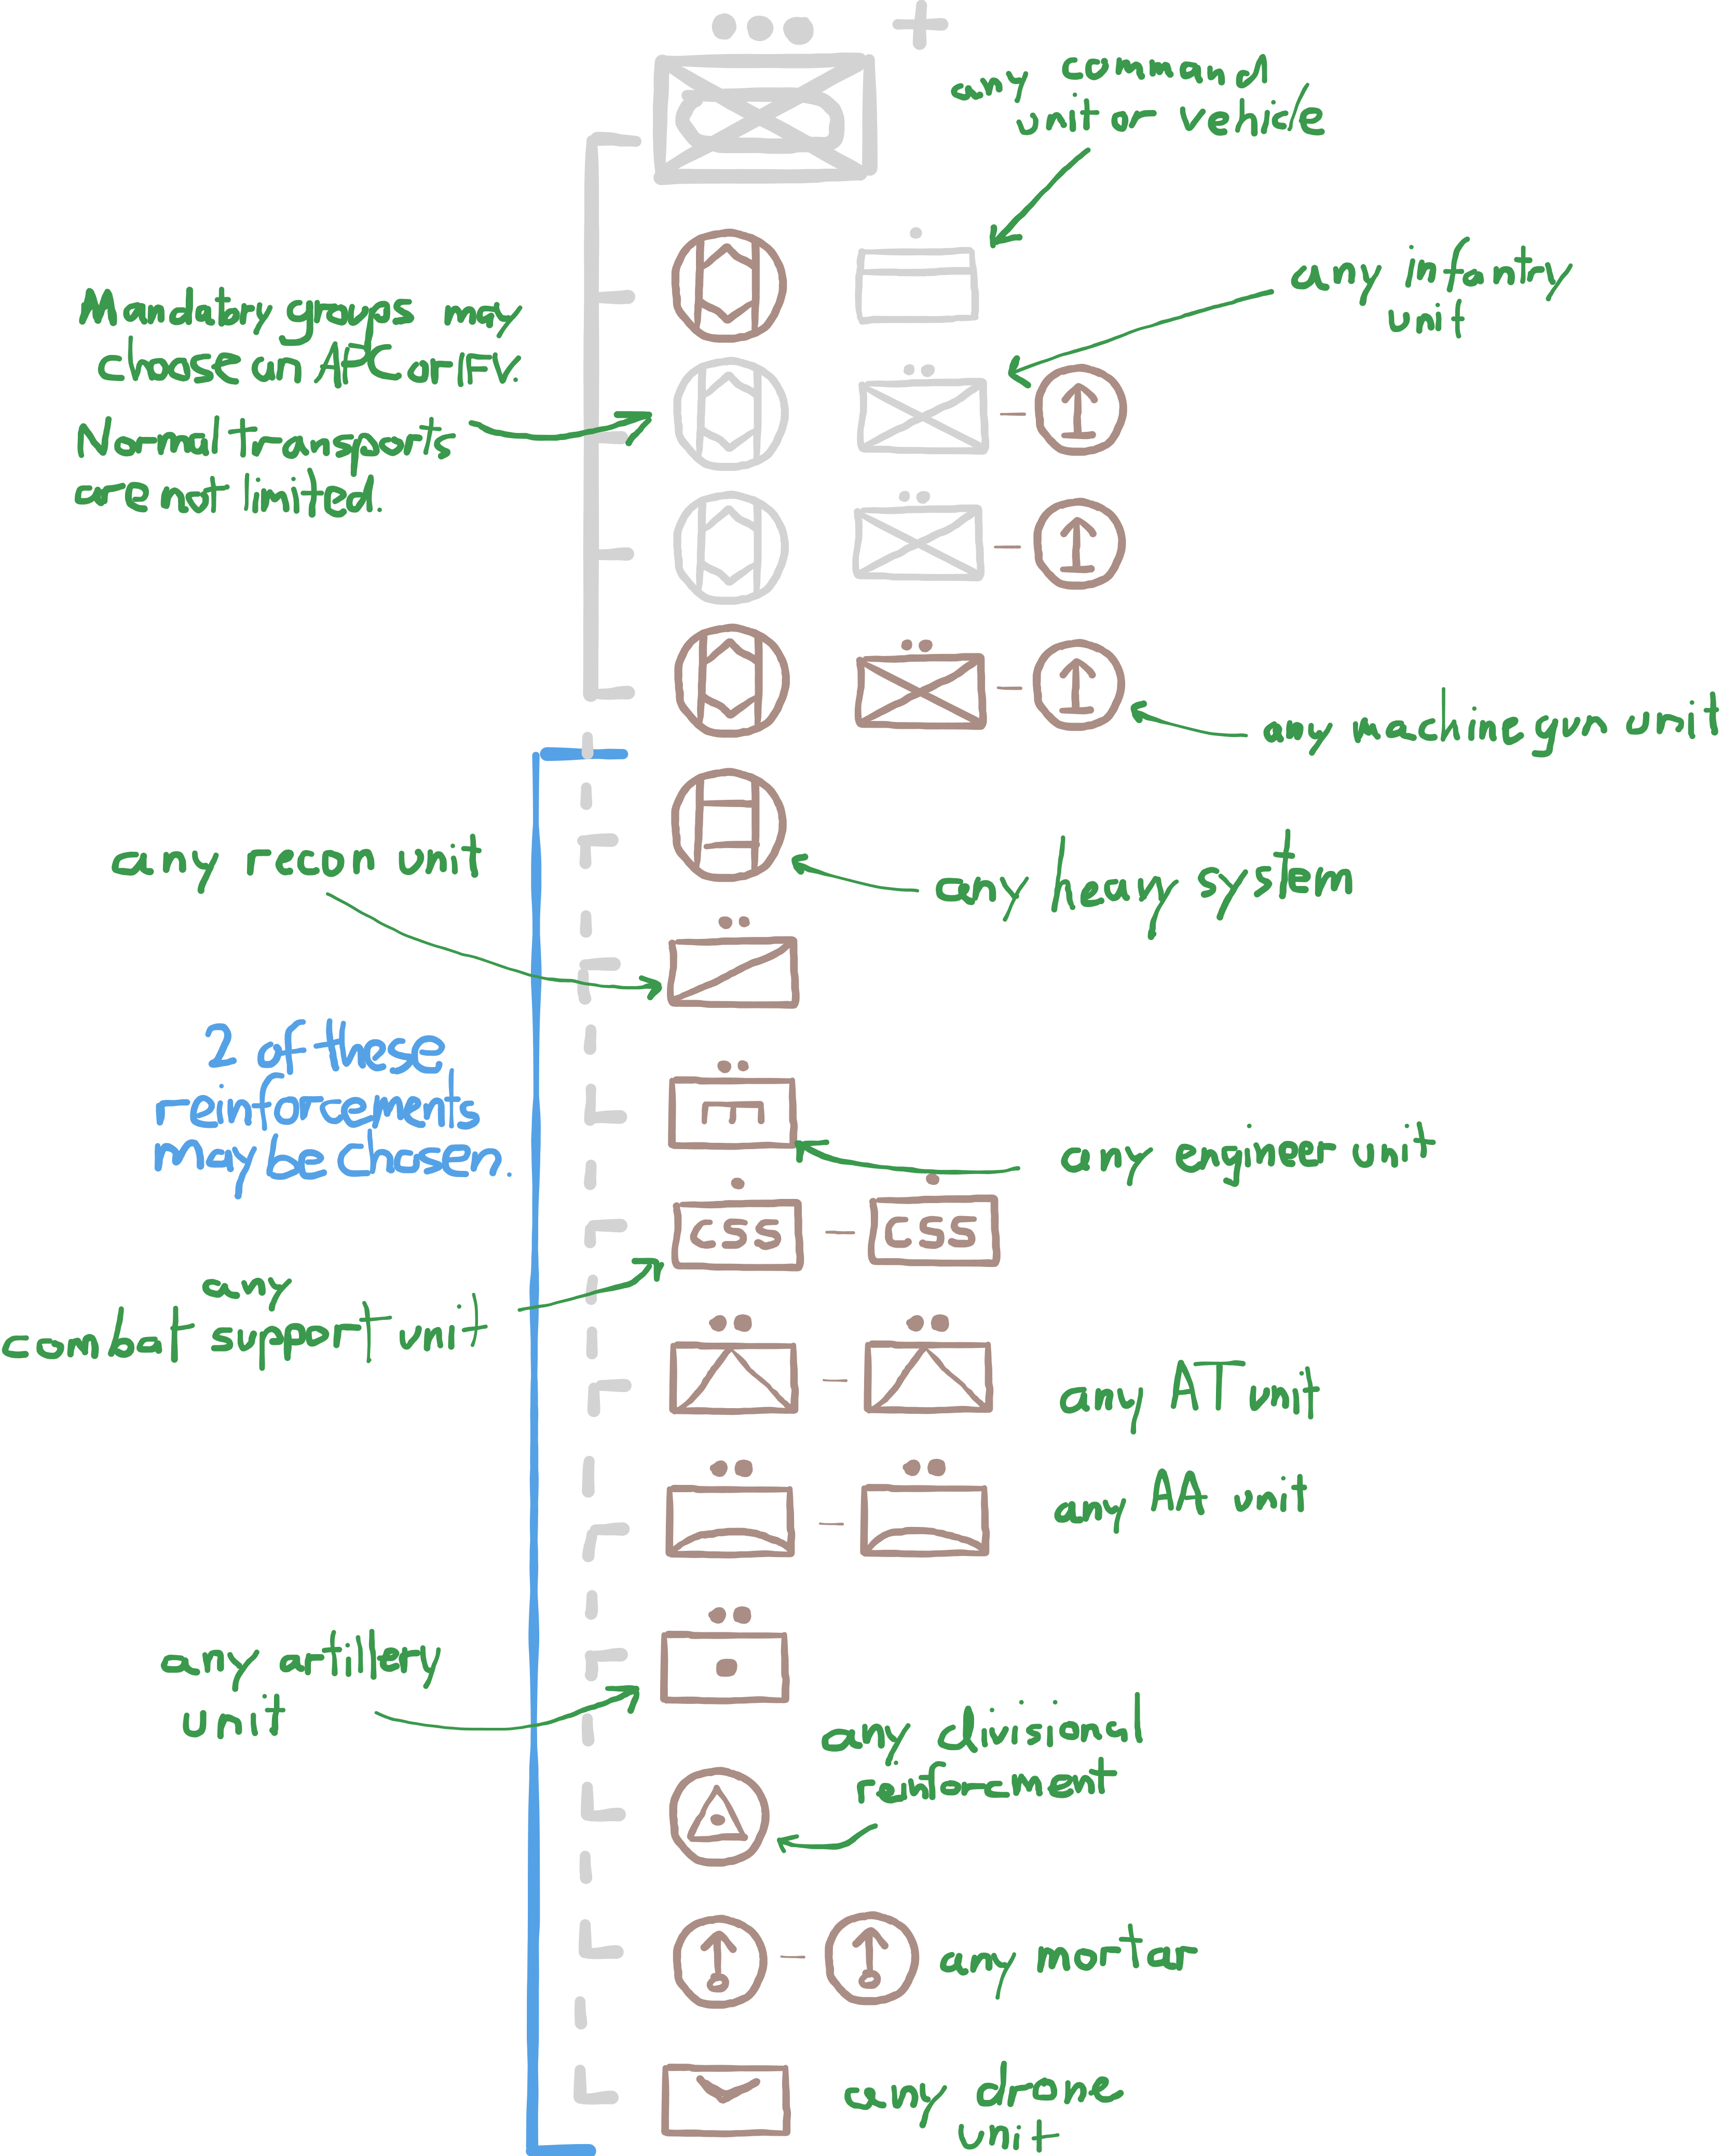 any command
unit or vehicle
any infantry
unit
Mandatory groups may
choose an APC or IFV.
Normal transports
are not limited.
any machinegun unit
any recon unit
any heavy system
2 of these
reinforcements
may be chosen.
any engineer unit
CSS - CSS
any
combat support unit
any AT unit
any AA unit
any artillery
unit
any divisional
reinforcement
any mortar
any drone
unit